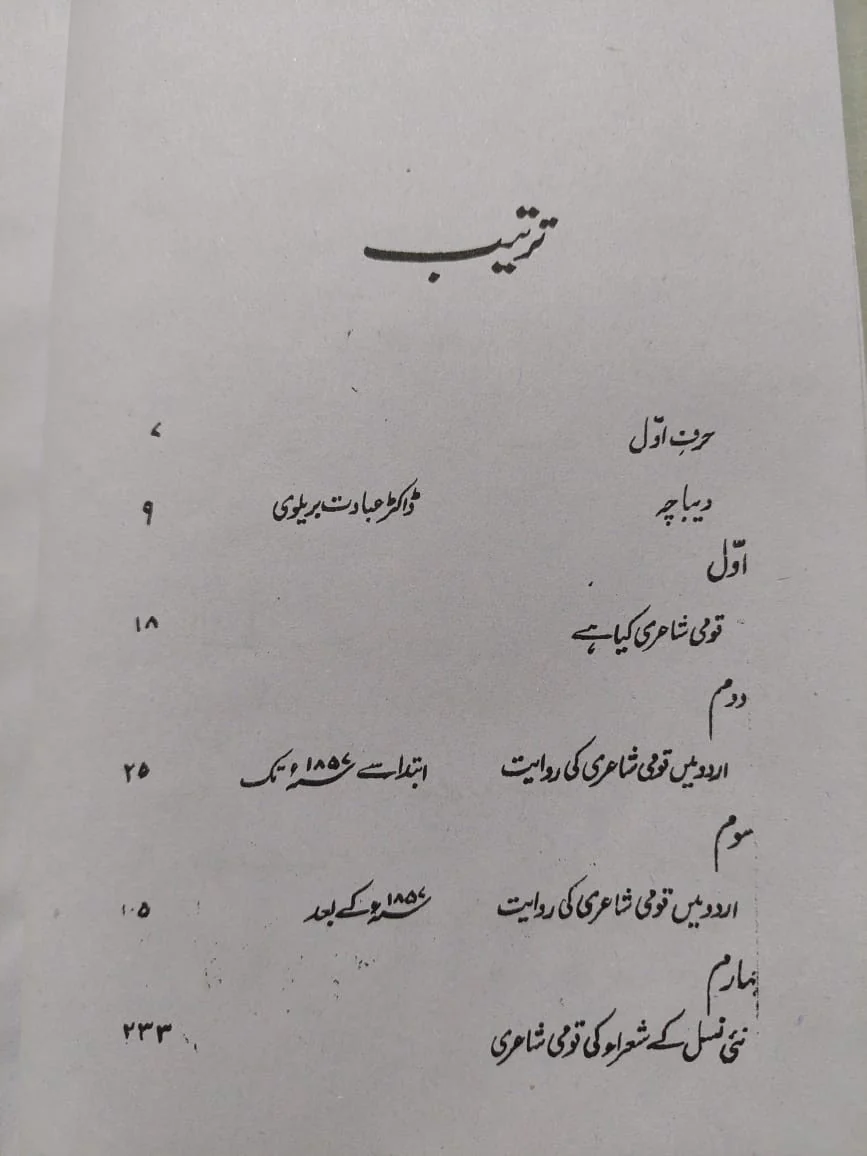 ترتیب
حرفِ اوّل ۷
دیباچہ ڈاکٹر عبادت بریلوی ۹
اوّل
قومی شاعری کیا ہے ۱۸
دوم
اردو میں قومی شاعری کی روایت ابتدا سے ۱۸۵۷ء تک ۲۵
سوم
اردو میں قومی شاعری کی روایت ۱۸۵۷ء کے بعد ۱۰۵
چہارم
نئی نسل کے شعراء کی قومی شاعری ۲۳۳